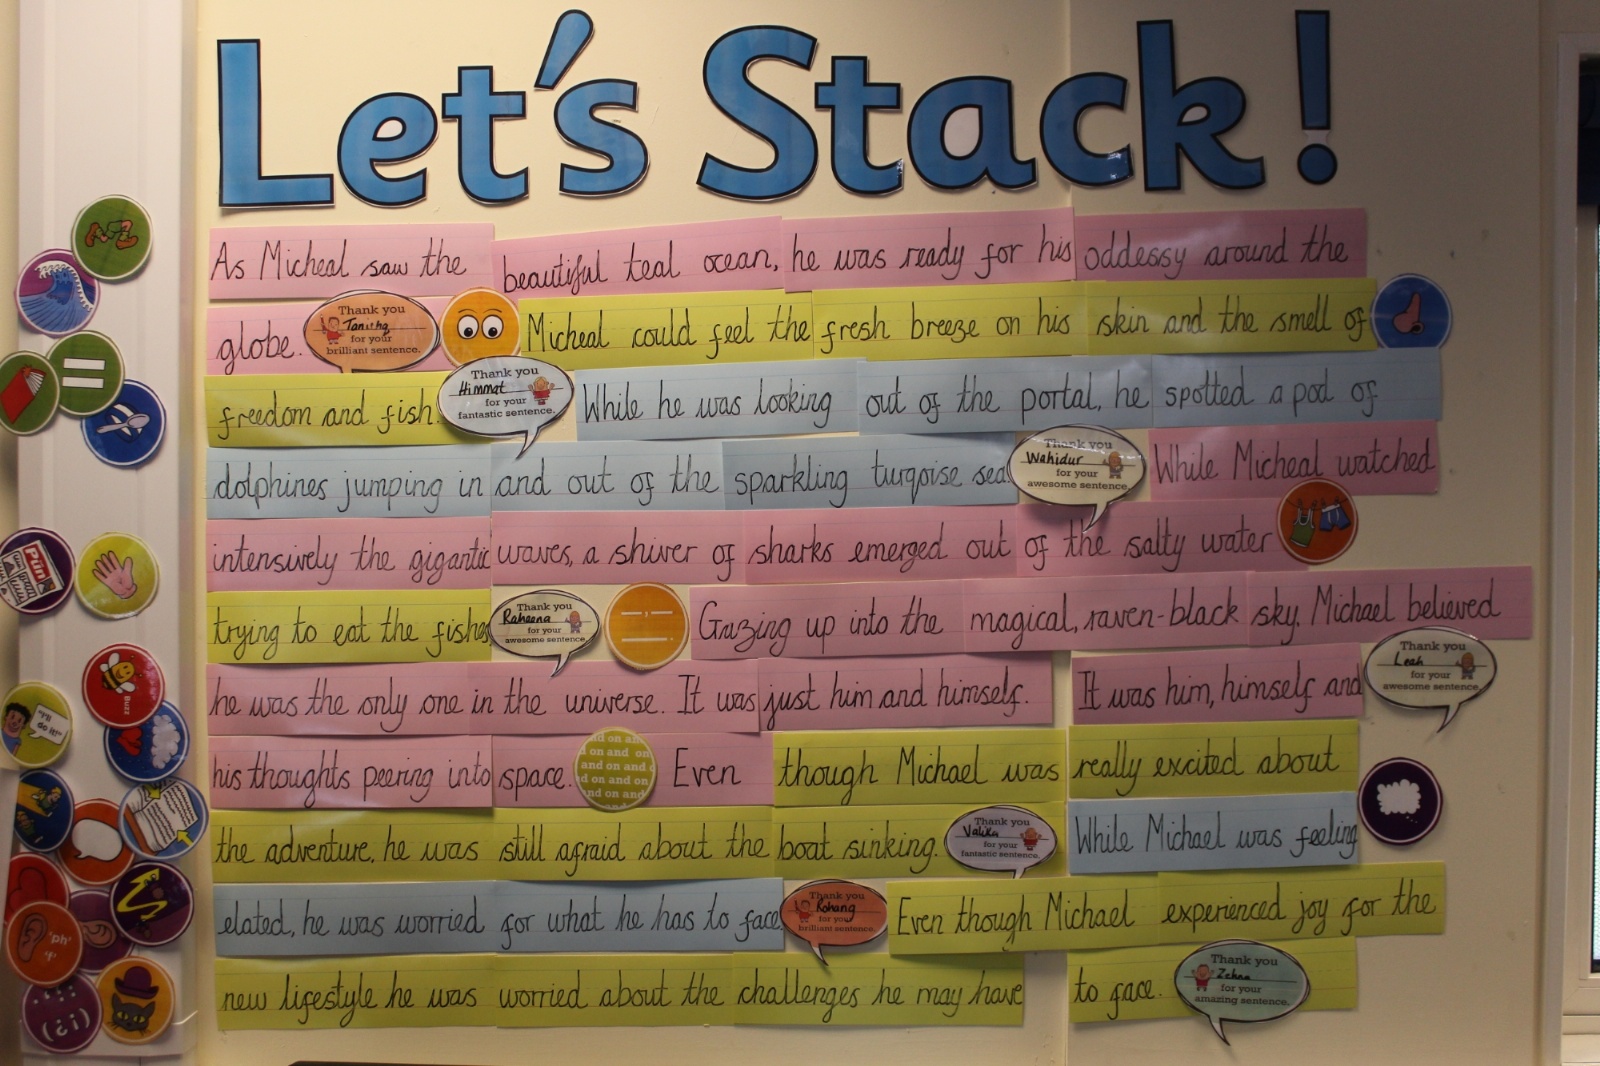 Let's Stack!
As Micheal saw the beautiful teal ocean, he was ready for his oddessy around the
globe. Thank you Tanisha for your brilliant sentence. Micheal could feel the fresh breeze on his skin and the smell of
freedom and fish. Thank you Himmat for your fantastic sentence. While he was looking out of the portal, he spotted a pod of
dolphines jumping in and out of the sparkling turqoise sea. Thank you Wahidur for your awesome sentence. While Micheal watched
intensively the gigantic waves, a shiver of sharks emerged out of the salty water
trying to eat the fishes Thank you Raheena for your awesome sentence. Gazing up into the magical, raven-black sky, Michael believed
he was the only one in the universe. It was just him and himself. It was him, himself and Thank you Leah for your awesome sentence.
his thoughts peering into space. and on and on and on Even though Michael was really excited about
the adventure, he was still afraid about the boat sinking. Thank you for your fantastic sentence. While Michael was feeling
elated, he was worried for what he has to face. Thank you Rohang for your brilliant sentence. Even though Michael experienced joy for the
new lifestyle he was worried about the challenges he may have to face. Thank you Zehna for your amazing sentence.
Pun
buzz
"I'll do it!"
'ph' 'f'
(¿¡)